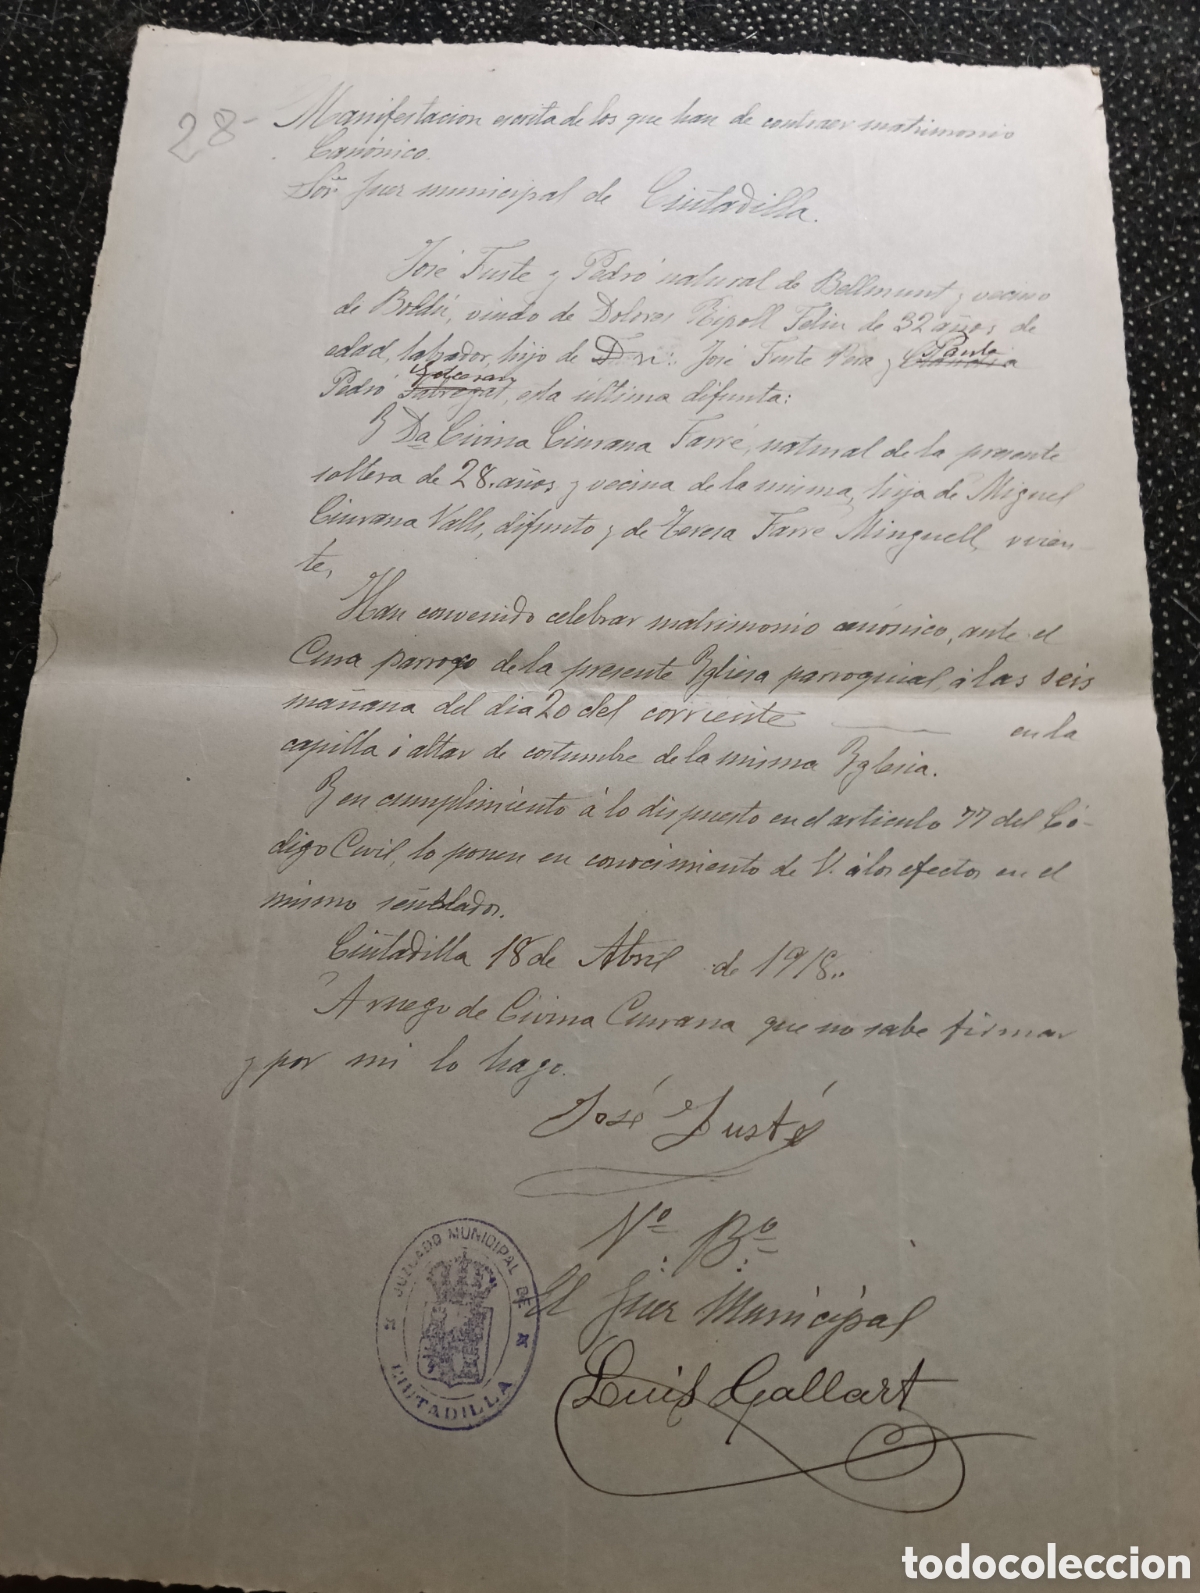 28-
Manifestacion escrita de los que han de contraer matrimonio
Canónico.
Sor. Juez municipal de Ciutadilla.
José Fusté y Pedró natural de Bellmunt y vecino
de Boldú, viudo de Dolores Ripoll Feliu de 32 años de
edad, labrador, hijo de José Fuste Pera y
Pedró esta última difunta:
Y Da Civina Ciurana Farré, natural de la presente
soltera de 28 años y vecina de la misma, hija de Miguel
Ciurana Valls, difunto y de Teresa Farré Minguell, vivien
te,
Han convenido celebrar matrimonio canónico, ante el
Cura parroco de la presente Yglesia parroquial, á las seis
mañana del dia 20 del corriente en la
capilla ó altar de costumbre de la misma Yglesia.
Y en cumplimiento á lo dispuesto en el articulo 77 del Có-
digo Civil, lo ponen en conocimiento de V. á los efectos en el
mismo señalados.
Ciutadilla 18 de Abril de 1918..
A ruego de Civina Ciurana que no sabe firmar
y por mi lo hago.
José Fusté
Vº Bº
El Juez Municipal
Luis Gallart
JUZGADO MUNICIPAL DE
CIUTADILLA
todocoleccion